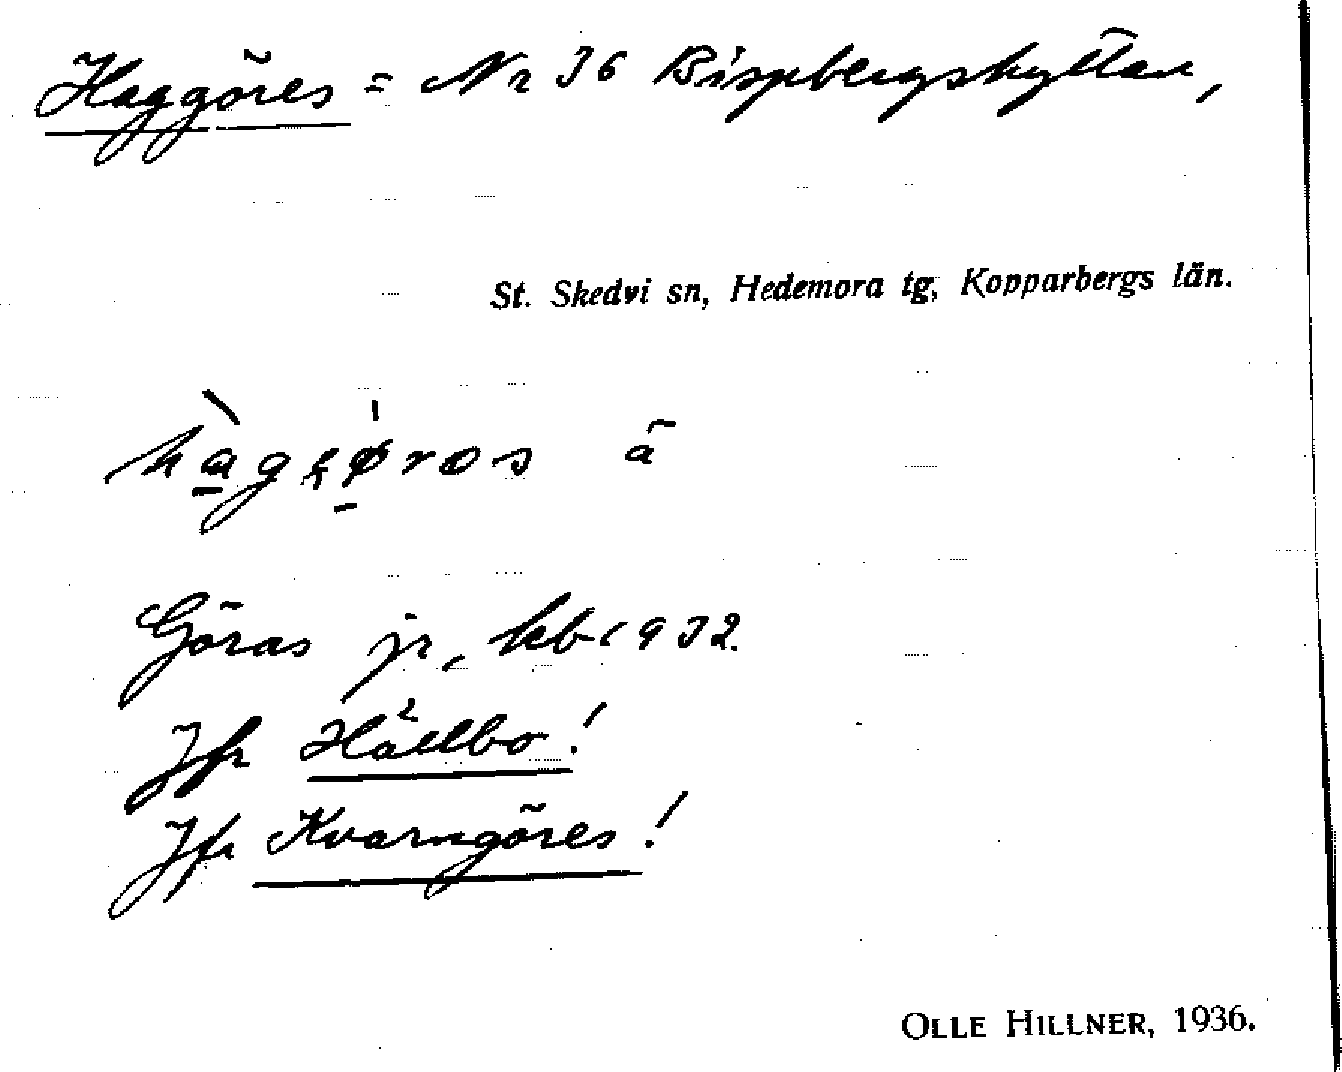 Haggöres = Nr 36 Bispbergshyttan,
St. Skedvi sn, Hedemora tg, Kopparbergs län.
ä
Göras jr, kb 1932.
Jfr Hällbo!
Jfr Kvarngöres!
OLLE HILLNER, 1936.